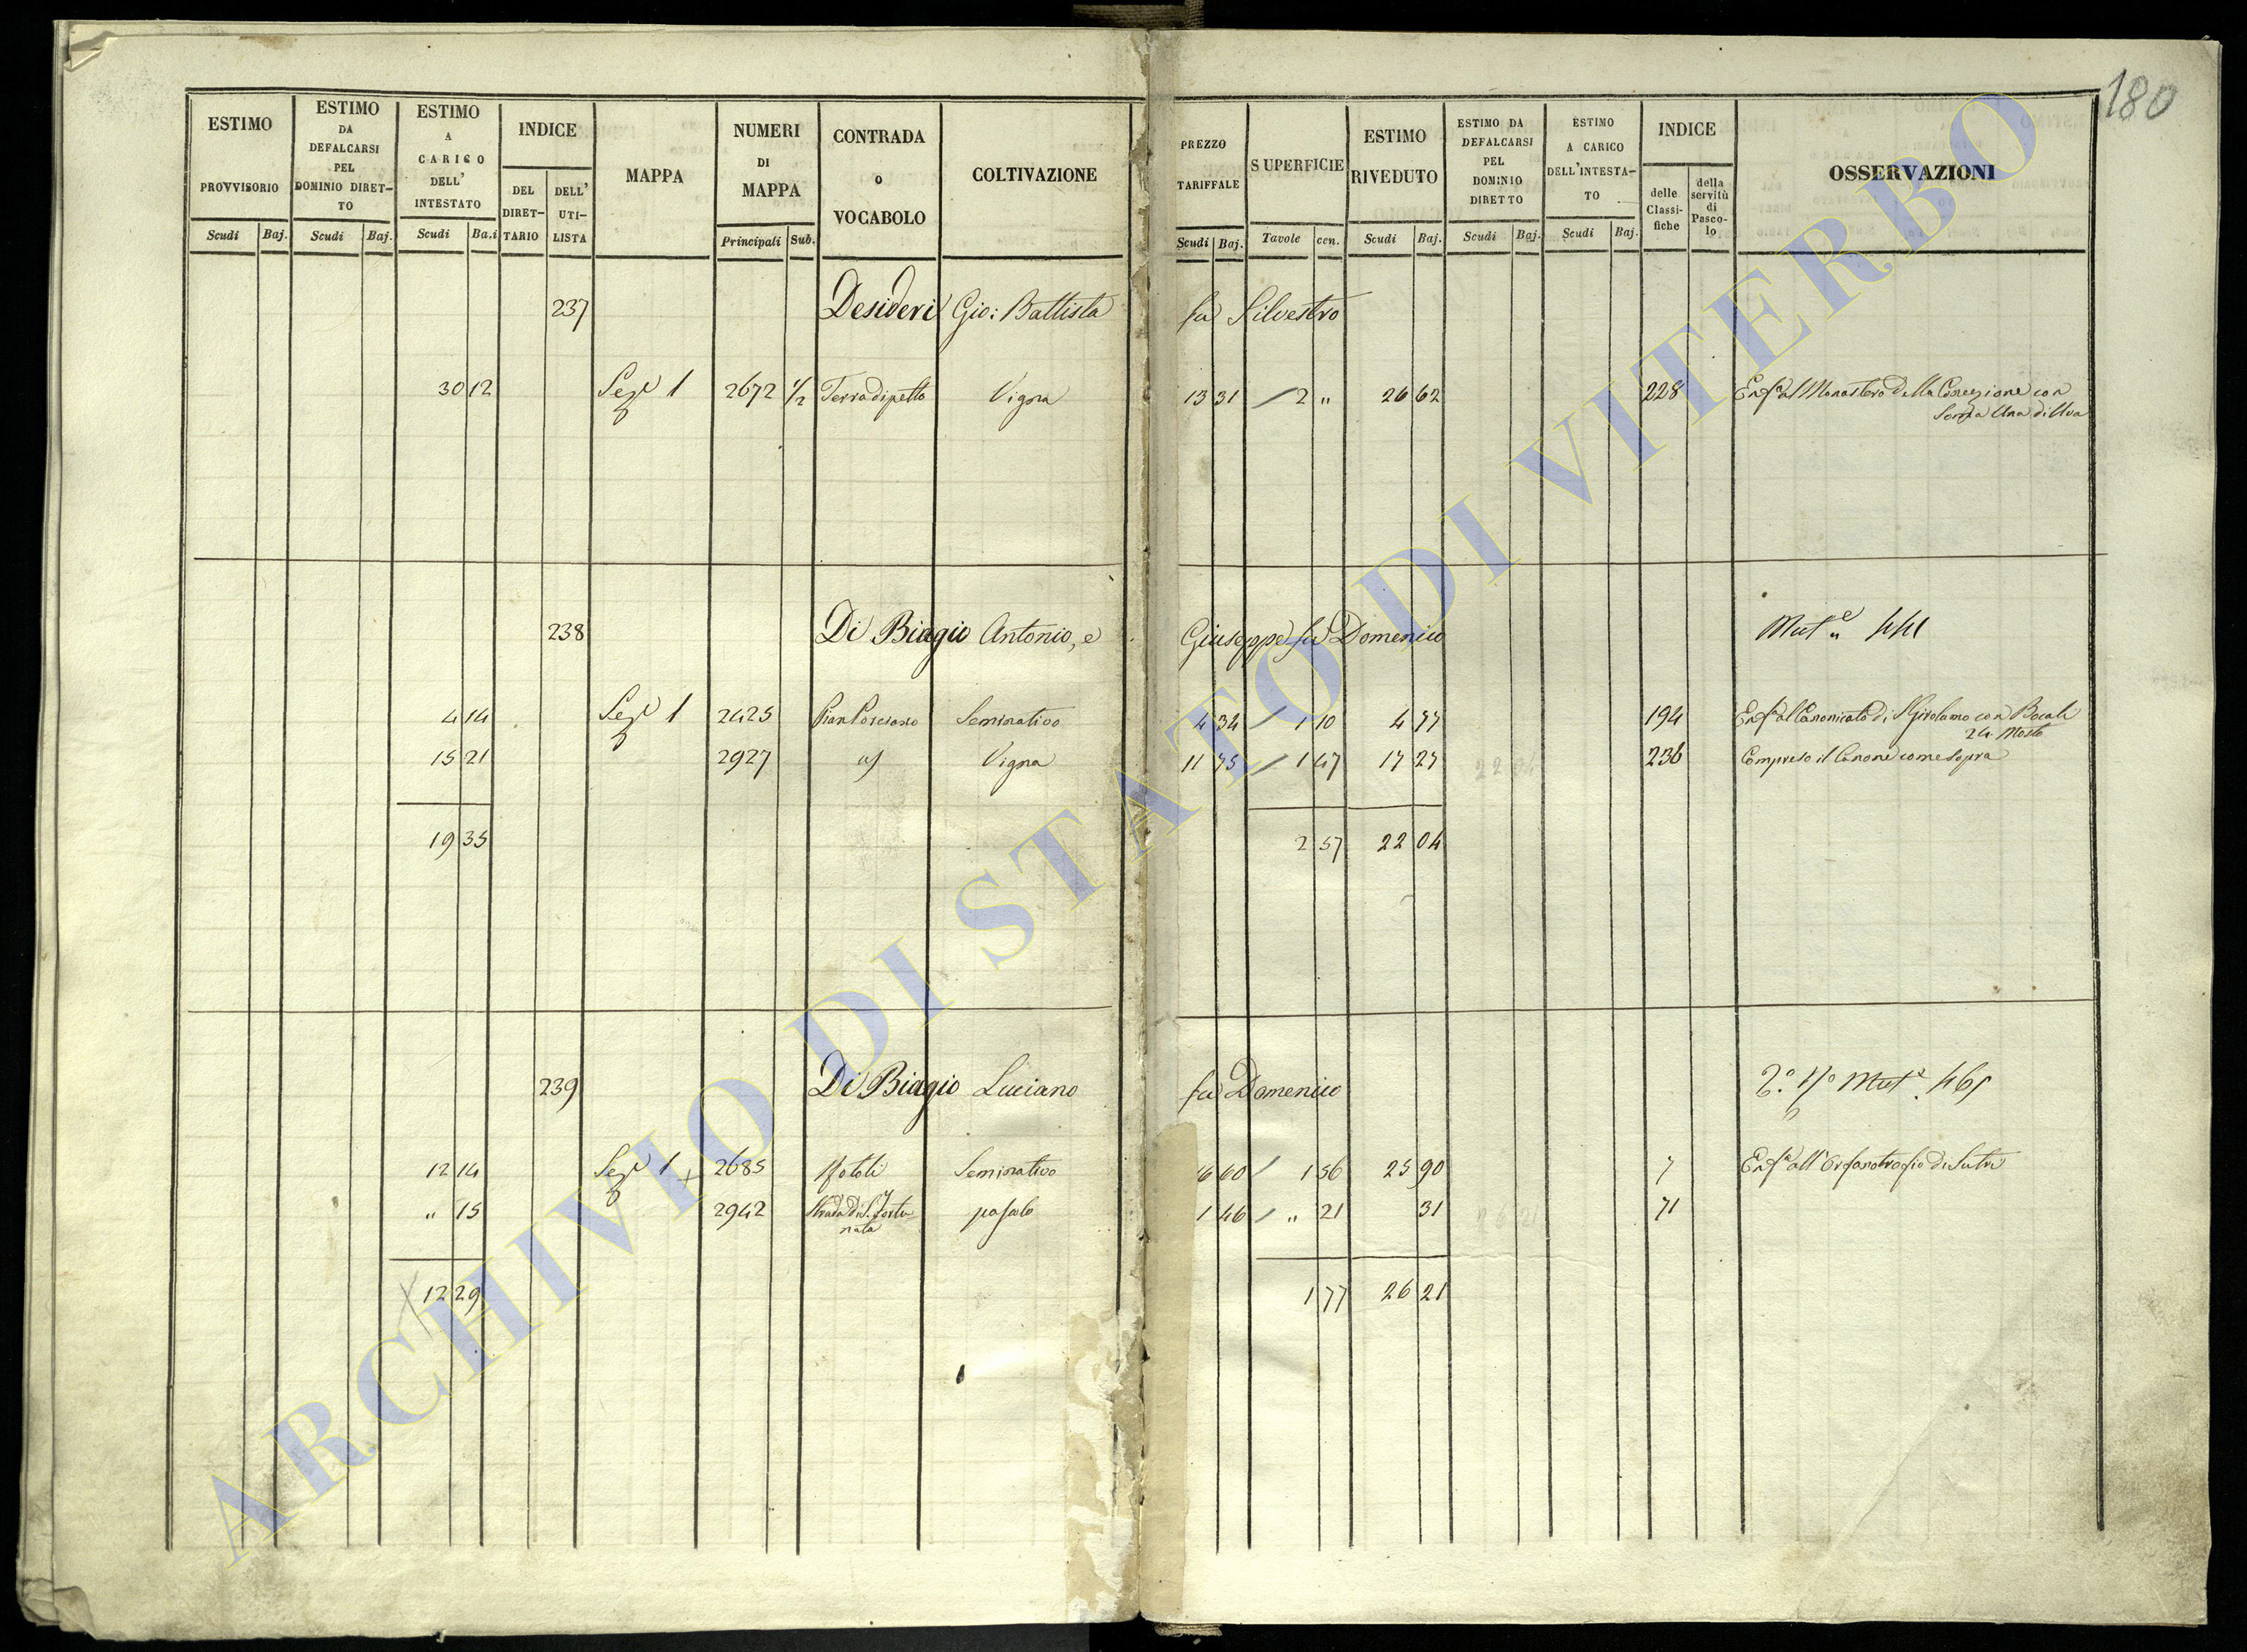 180
ESTIMO PROVVISORIO
Scudi Baj.
ESTIMO DA DEFALCARSI PEL DOMINIO DIRET-TO
Scudi Baj.
ESTIMO A CARICO DELL' INTESTATO
Scudi Ba.i
INDICE
DEL DIRET-TARIO
DELL' UTI-LISTA
MAPPA
NUMERI DI MAPPA
Principali Sub.
CONTRADA o VOCABOLO
COLTIVAZIONE
PREZZO TARIFFALE
Scudi Baj.
SUPERFICIE
Tavole cen.
ESTIMO RIVEDUTO
Scudi Baj.
ESTIMO DA DEFALCARSI PEL DOMINIO DIRETTO
Scudi Baj.
ESTIMO A CARICO DELL'INTESTA-TO
Scudi Baj.
INDICE
delle Classi-fiche
della servitù di Pasco-lo
OSSERVAZIONI
237 Desideri Gio: Battista fu Silvestro
30 12 Sez.e 1 2672 1/2 Terra di petto Vigna 13 31 / 2 " 26 62 228 Enf.a al Monastero della Concezione con
Soma Una di Uva
238 Di Biagio Antonio, e Giuseppe fu Domenico Mut.e 441
4 14 Sez.e 1 2425 Seminativo 4 34 / 1 10 4 77 194 Enf.a al Canonicato di S Girolamo con Bocali
24 Mosto
15 21 2927 Vigna 11 75 / 1 47 17 27 236 Compreso il Canone come sopra
22 04
19 35 2 57 22 04
239 Di Biagio Luciano fu Domenico Mut.e 465
12 14 Sez.e 1 2685 Seminativo 16 60 / 1 56 25 90 7 Enf.a all'Orfanotrofio di Sutri
" 15 2942 Strada di S. Fortu
nata pascolo 1 46 / " 21 31 71
26 21
12 29 1 77 26 21
ARCHIVIO DI STATO DI VITERBO